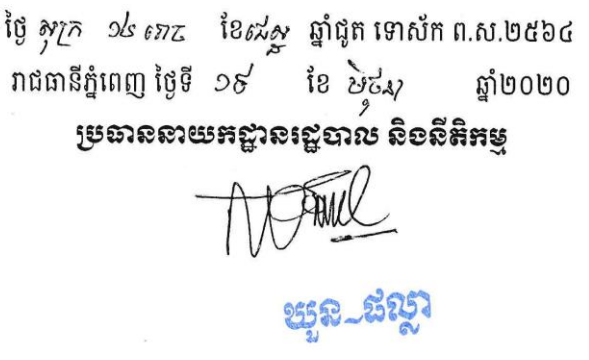 ថ្ងៃ សុក្រ ១៤ រោច ខែជេស្ឋ ឆ្នាំជូត ទោស័ក ព.ស.២៥៦៤
រាជធានីភ្នំពេញ ថ្ងៃទី ១៩ ខែ មិថុនា ឆ្នាំ២០២០
ប្រធាននាយកដ្ឋានរដ្ឋបាល និងនីតិកម្ម
ឃួន-ផល្លា